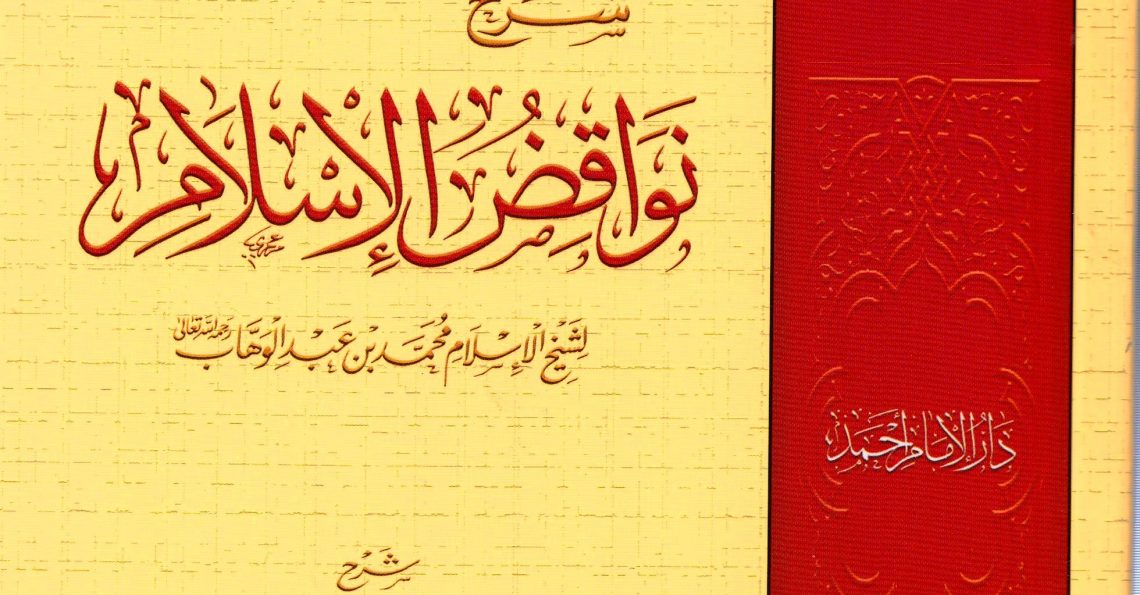 شرح
نَوَاقِضُ الإِسْلَامِ
لِشَيْخِ الإِسْلَامِ مُحَمَّد بْن عَبْدِ الوَهَّابِ رَحِمَهُ اللهُ تَعَالَى
شَرْح
دَارُ الإِمَامِ أَحْمَد